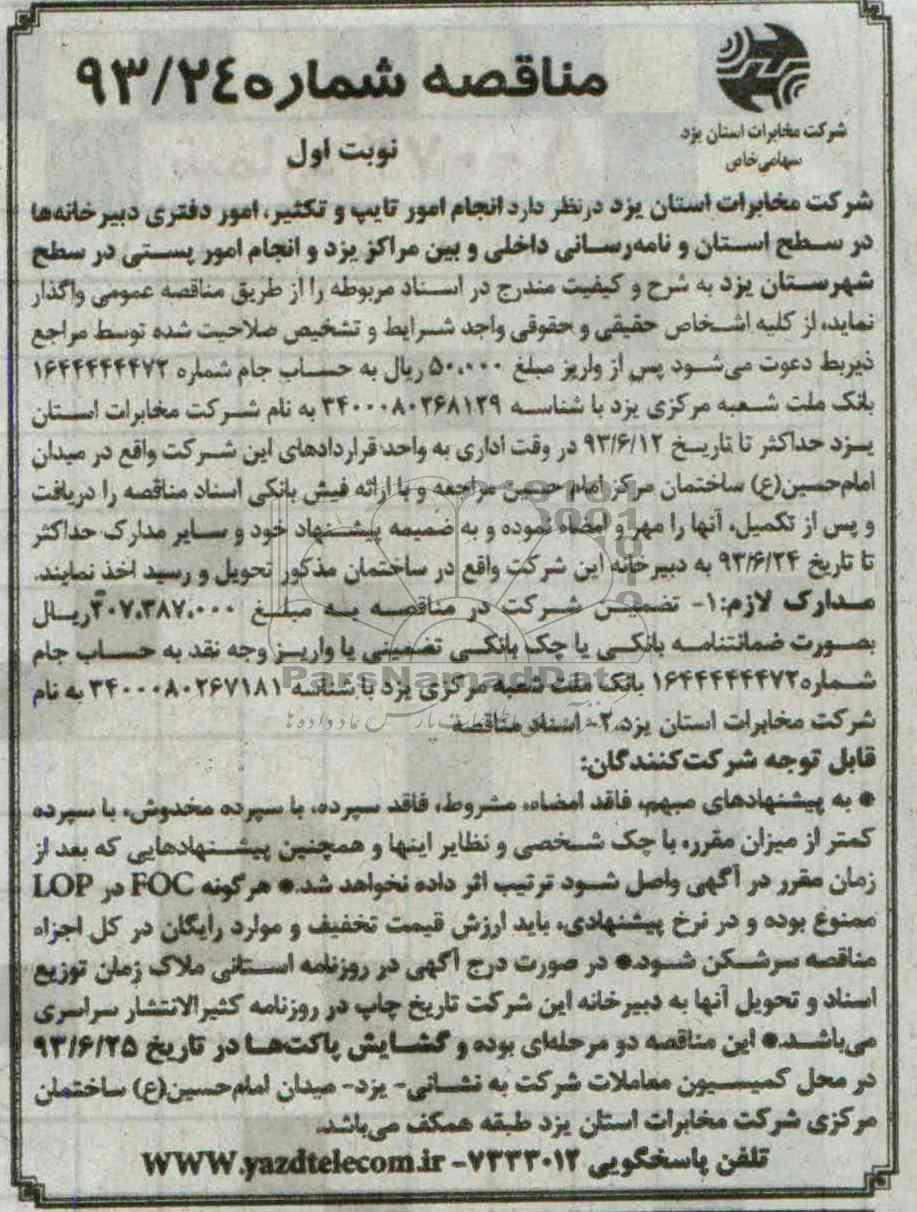 مناقصه شماره ۹۳/۲٤
شرکت مخابرات استان یزد
سهامی خاص
نوبت اول
شرکت مخابرات استان یزد درنظر دارد انجام امور تایپ و تکثیر، امور دفتری دبیرخانه‌ها
در سطح استان و نامه‌رسانی داخلی و بین مراکز یزد و انجام امور پستی در سطح
شهرستان یزد به شرح و کیفیت مندرج در اسناد مربوطه را از طریق مناقصه عمومی واگذار
نماید، از کلیه اشخاص حقیقی و حقوقی واجد شرایط و تشخیص صلاحیت شده توسط مراجع
ذیربط دعوت می‌شود پس از واریز مبلغ ۵۰،۰۰۰ ریال به حساب جام شماره ۱۶۴۴۴۴۴۴۷۲
بانک ملت شعبه مرکزی یزد با شناسه ۳۴۰۰۰۸۰۲۶۸۱۲۹ به نام شرکت مخابرات استان
یزد حداکثر تا تاریخ ۹۳/۶/۱۲ در وقت اداری به واحد قراردادهای این شرکت واقع در میدان
امام‌حسین(ع) ساختمان مرکز امام حسین مراجعه و با ارائه فیش بانکی اسناد مناقصه را دریافت
و پس از تکمیل، آنها را مهر و امضاء نموده و به ضمیمه پیشنهاد خود و سایر مدارک حداکثر
تا تاریخ ۹۳/۶/۲۴ به دبیرخانه این شرکت واقع در ساختمان مذکور تحویل و رسید اخذ نمایند.
مدارک لازم:۱- تضمین شرکت در مناقصه به مبلغ ۲۰۷،۳۸۷،۰۰۰ریال
بصورت ضمانتنامه بانکی یا چک بانکی تضمینی یا واریز وجه نقد به حساب جام
شماره۱۶۴۴۴۴۴۴۷۲ بانک ملت شعبه مرکزی یزد با شناسه ۳۴۰۰۰۸۰۲۶۷۱۸۱ به نام
ParsNamadData
شرکت مخابرات استان یزد.۲- اسناد مناقصه
قابل توجه شرکت‌کنندگان:
● به پیشنهادهای مبهم، فاقد امضاء، مشروط، فاقد سپرده، با سپرده مخدوش، با سپرده
کمتر از میزان مقرر، با چک شخصی و نظایر اینها و همچنین پیشنهادهایی که بعد از
زمان مقرر در آگهی واصل شود ترتیب اثر داده نخواهد شد.● هرگونه FOC در LOP
ممنوع بوده و در نرخ پیشنهادی، باید ارزش قیمت تخفیف و موارد رایگان در کل اجزاء
مناقصه سرشکن شود.● در صورت درج آگهی در روزنامه استانی ملاک زمان توزیع
اسناد و تحویل آنها به دبیرخانه این شرکت تاریخ چاپ در روزنامه کثیرالانتشار سراسری
می‌باشد.● این مناقصه دو مرحله‌ای بوده و گشایش پاکت‌ها در تاریخ ۹۳/۶/۲۵
در محل کمیسیون معاملات شرکت به نشانی- یزد- میدان امام‌حسین(ع) ساختمان
مرکزی شرکت مخابرات استان یزد طبقه همکف می‌باشد.
تلفن پاسخگویی ۷۲۳۳۰۱۲- WWW.yazdtelecom.ir